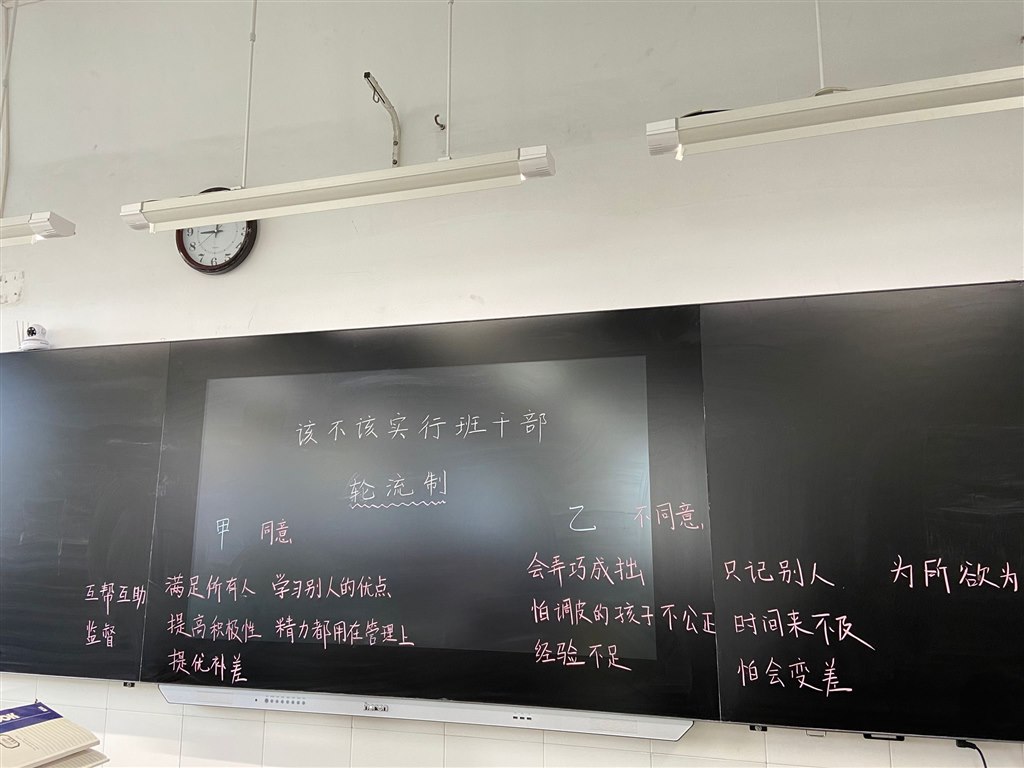 该不该实行班干部
轮流制
甲 同意
乙 不同意
互帮互助
监督
满足所有人 学习别人的优点
提高积极性 精力都用在管理上
提优补差
会弄巧成拙
怕调皮的孩子不公正
经验不足
只记别人
时间来不及
怕会变差
为所欲为